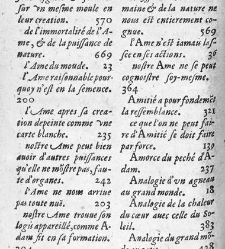 sur vn mesme moule en
leur creation. 570
de l'immortalité de l'A-
me, & de la puissance de
nature. 669
l'Ame du monde. 23
l'Ame raisonnable pour-
quoy n'est en la semence.
200
l'Ame apres sa crea-
tion depeinte comme vne
carte blanche. 235
nostre Ame peut bien
auoir d'autres puissances
qu'elle ne mōstre pas, fau-
te d'organes. 242
l'Ame ne nous arriue
pas toute nuë. 203
nostre Ame trouue son
logis appareillé, comme A-
dam fit en sa formation.
maine & de la nature ne
nous est entierement co-
gnuë. 569
l'Ame n'est iamais las-
see en ses actions. 36
nostre Ame ne se peut
cognoistre soy-mesme.
364
Amitié a pour fondemēt
la ressemblance. 321
ce que l'on ne peut faire
d'Amitié se doit faire
par force. 139
Amorce du peché d'A-
dam. 37
Analogie d'vn agneau
au grand monde. 18
Analogie de la chaleur
du cœur auec celle du So-
leil. 383
Analogie du grand mō-